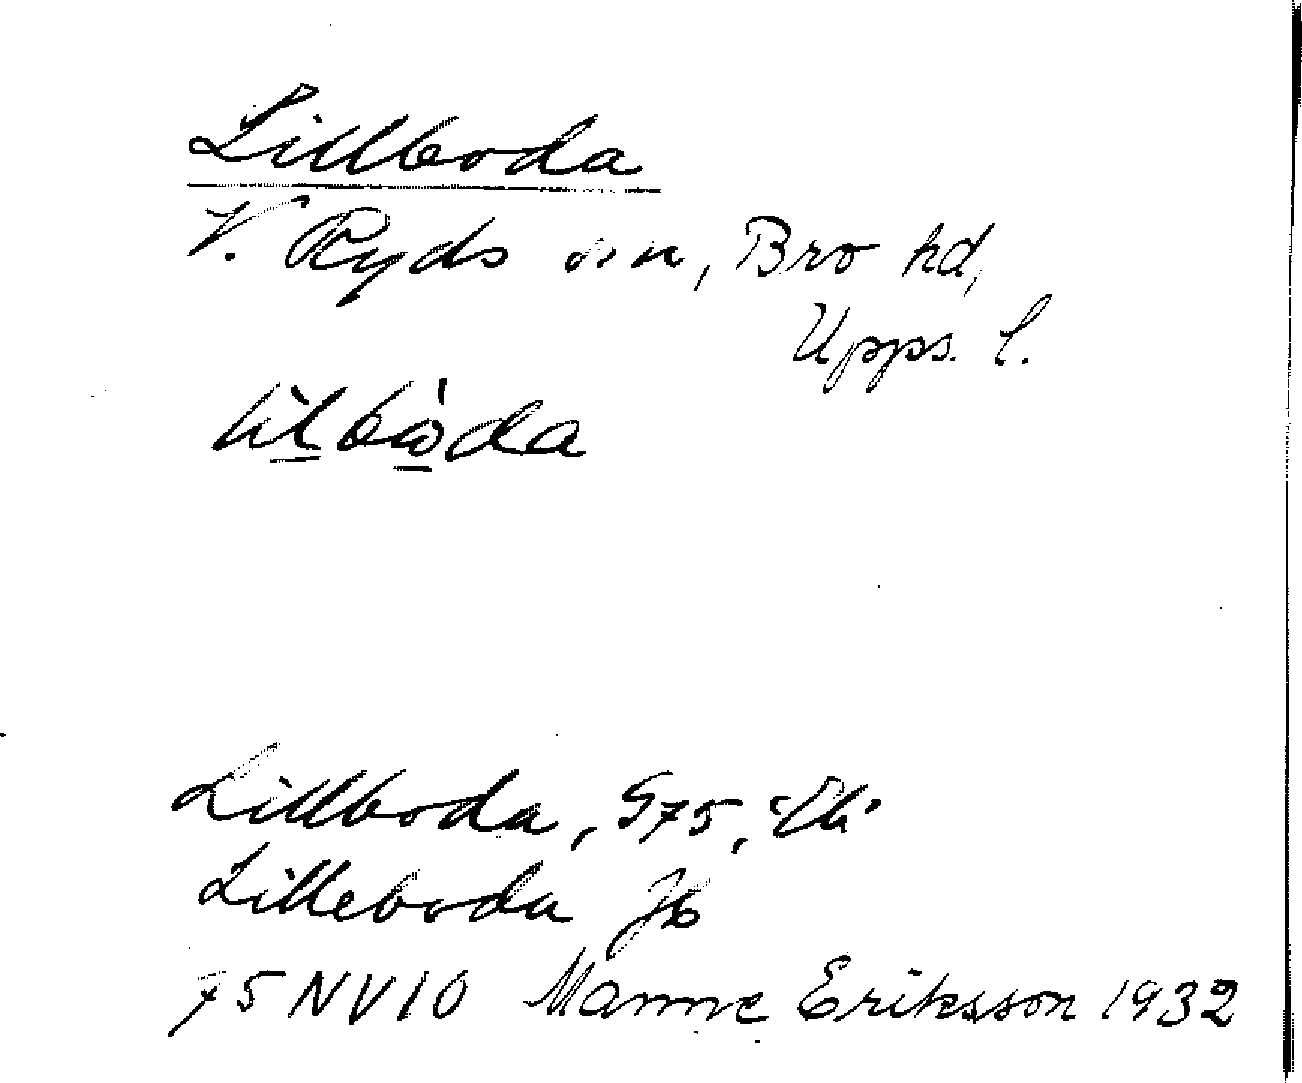 Lillboda
V. Ryds sn, Bro hd,
Upps. l.
Lillboda, G75, Ek
Lilleboda Jb
75 NV 10 Manne Eriksson 1932